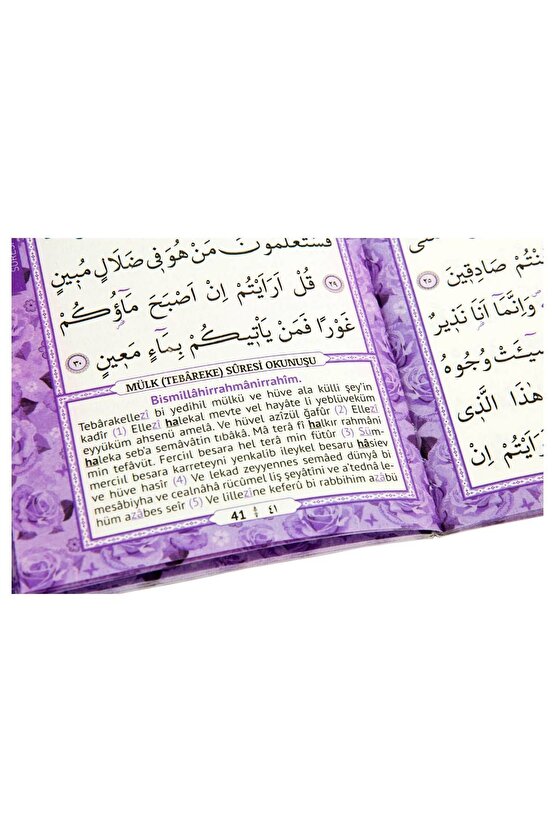 فَسَتَعْلَمُونَ مَنْ هُوَ فِى ضَلَالٍ مُبِينٍ
٢٩ قُلْ اَرَاَيْتُمْ اِنْ اَصْبَحَ مَاؤُكُمْ
غَوْرًا فَمَنْ يَاْتِيكُمْ بِمَاءٍ مَعِينٍ ٣٠
MÜLK (TEBÂREKE) SÛRESİ OKUNUŞU
Bismillâhirrahmânirrahîm.
Tebârakellezî bi yedihil mülkü ve hüve ala külli şey'in
kadîr (1) Ellezî halekal mevte vel hayâte li yeblüveküm
eyyüküm ahsenü amelâ. Ve hüvel azîzül ğafûr (2) Ellezî
haleka seb'a semâvâtin tıbâkâ. Mâ terâ fî halkır rahmâni
min tefâvüt. Ferciıl besara hel terâ min fütûr (3) Süm-
merciıl besara karreteyni yenkalib ileykel besaru hâsiev
ve hüve hasîr (4) Ve lekad zeyyennes semâed dünyâ bi
mesâbiyha ve cealnâhâ rücûmel liş şeyâtîni ve a'tednâ le-
hüm azâbes seîr (5) Ve lillezîne keferû bi rabbihim azâbü
41 ٤١
كُنْتُمْ صَادِقِينَ ٢٥
وَاِنَّمَا اَنَا نَذِيرٌ
سِيئَتْ وُجُوهُ
هٰذَا الَّذِى
اَرَاَيْتُمْ اِنْ